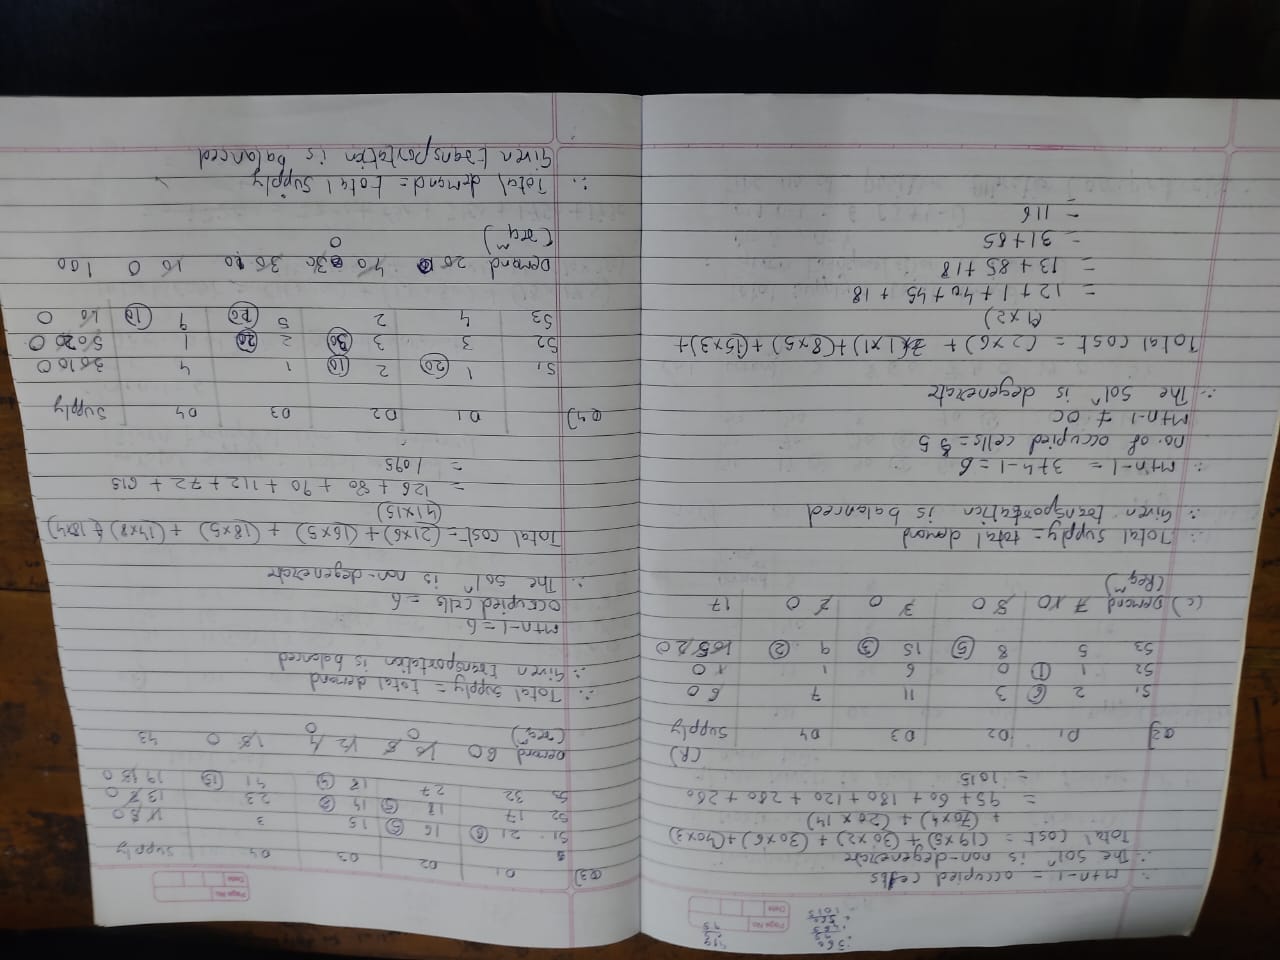 360
Page No.
Date
∴ m+n-1 = occupied cells
∴ The solⁿ is non-degenerate
Total cost = (19×5) + (30×2) + (30×6) + (40×3)
+ (70×4) + (20×14)
= 95 + 60 + 180 + 120 + 280 + 280
= 1015
(R)
Q2] D1 D2 D3 D4 Supply
S1 2 ⑥ 3 11 7 6 0
S2 1 ① 0 6 1 1 0
S3 5 8 ⑤ 15 ③ 9 ② 10 5 2 0
(c) Demand 7 1 0 5 0 3 0 2 0 17
(Reqᵐ)
∴ Total supply = total demand
∴ Given transportation is balanced
∴ m+n-1 = 3+4-1 = 6
no. of occupied cells = 5
m+n-1 ≠ OC
∴ The solⁿ is degenerate
Total cost = (2×6) + (1×1) + (8×5) + (15×3) +
(9×2)
= 12 + 1 + 40 + 45 + 18
= 13 + 85 + 18
= 31 + 85
= 116
Page No.
Date
Q3] D1 D2 D3 D4 Supply
S1 21 ⑥ 16 ⑤ 15 3 11 5 0
S2 17 18 ⑤ 14 ⑧ 23 13 8 0
S3 32 27 18 ④ 41 ⑮ 19 15 0
Demand 6 0 10 5 12 4 15 0 43
(reqᵐ) 0 0
∴ Total supply = total demand
∴ Given transportation is balanced
m+n-1 = 6
occupied cells = 6
∴ The solⁿ is non-degenerate
Total cost = (21×6) + (16×5) + (18×5) + (14×8) + (18×4)
(41×15)
= 126 + 80 + 90 + 112 + 72 + 615
= 1095
Q4] D1 D2 D3 D4 Supply
S1 1 ⑳ 2 ⑩ 1 4 30 10 0
S2 3 3 ㉚ 2 ⑳ 1 50 20 0
S3 4 2 5 9 ⑩ 0
Demand 20 0 40 30 30 10 10 0 100
(reqᵐ) 0
∴ Total demand = total supply
Given transportation is balanced